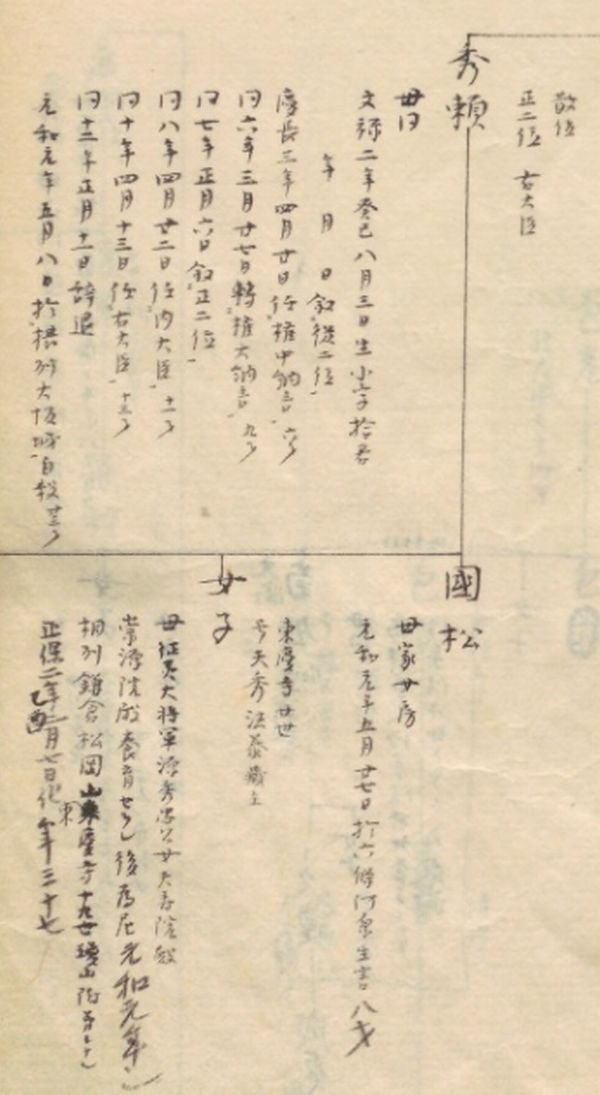 秀頼
従位
正二位 右大臣
母同
文禄二年癸巳八月三日生小字拾君
年月日叙従二位
慶長三年四月廿日任権中納言 六才
同六年三月廿七日転権大納言 九才
同七年正月六日叙正二位
同八年四月廿二日任内大臣 十一才
同十年四月十三日任右大臣 十三才
同十二年正月十一日辞退
元和元年五月八日於摂州大坂城自殺 廿三才
國松
母家女房
元和元年五月廿七日於六條河原生害八才
女子
東慶寺廿世
号天秀法泰
母征夷大将軍源秀忠公女天寿院殿
養育セラル後為尼元和元年
相州鎌倉松岡山東慶寺十九世瓊山
東
正保二年乙酉二月七日化年三十七